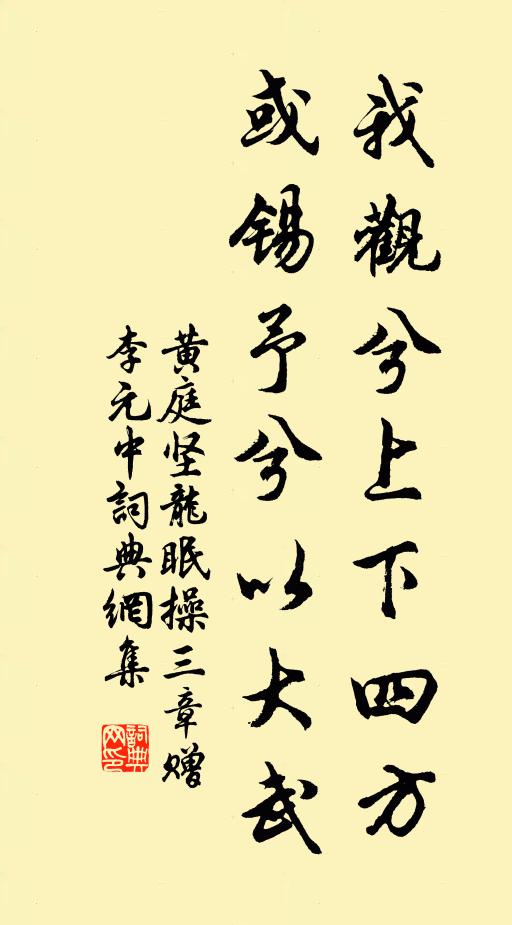 我觀兮上下四方
或錫予兮以大武
黄庭坚龍眠操三章赠
李元中詞典網集
詞典网印